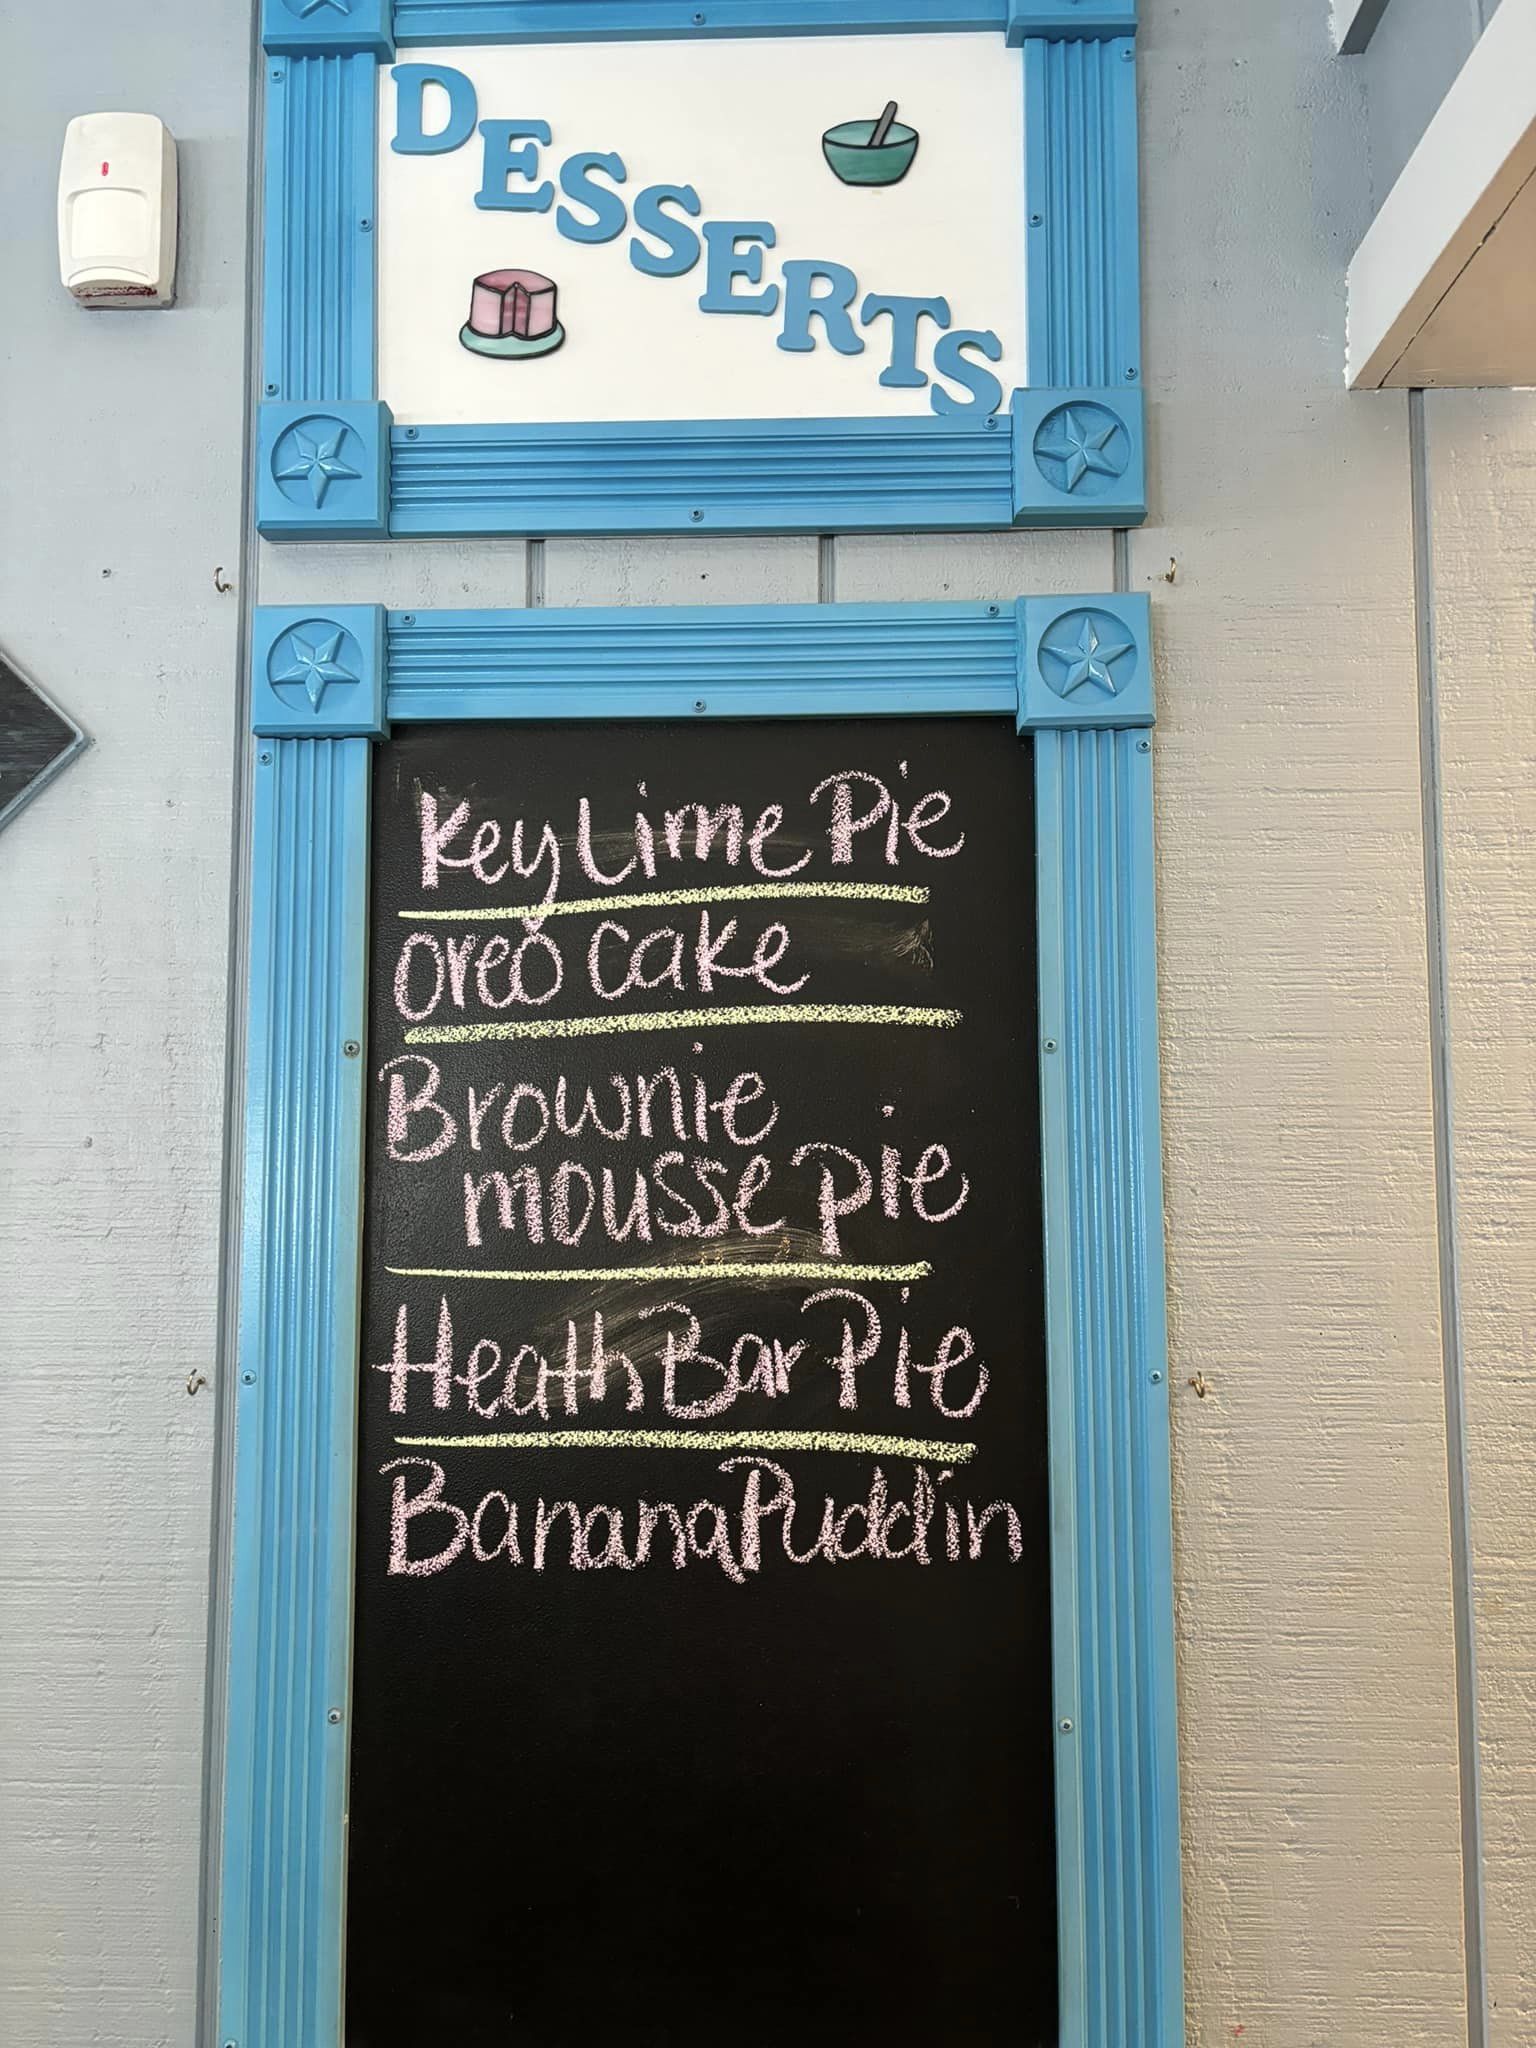 DESSERTS
Key Lime Pie
Oreo Cake
Brownie
mousse pie
Heath Bar Pie
Banana Puddin